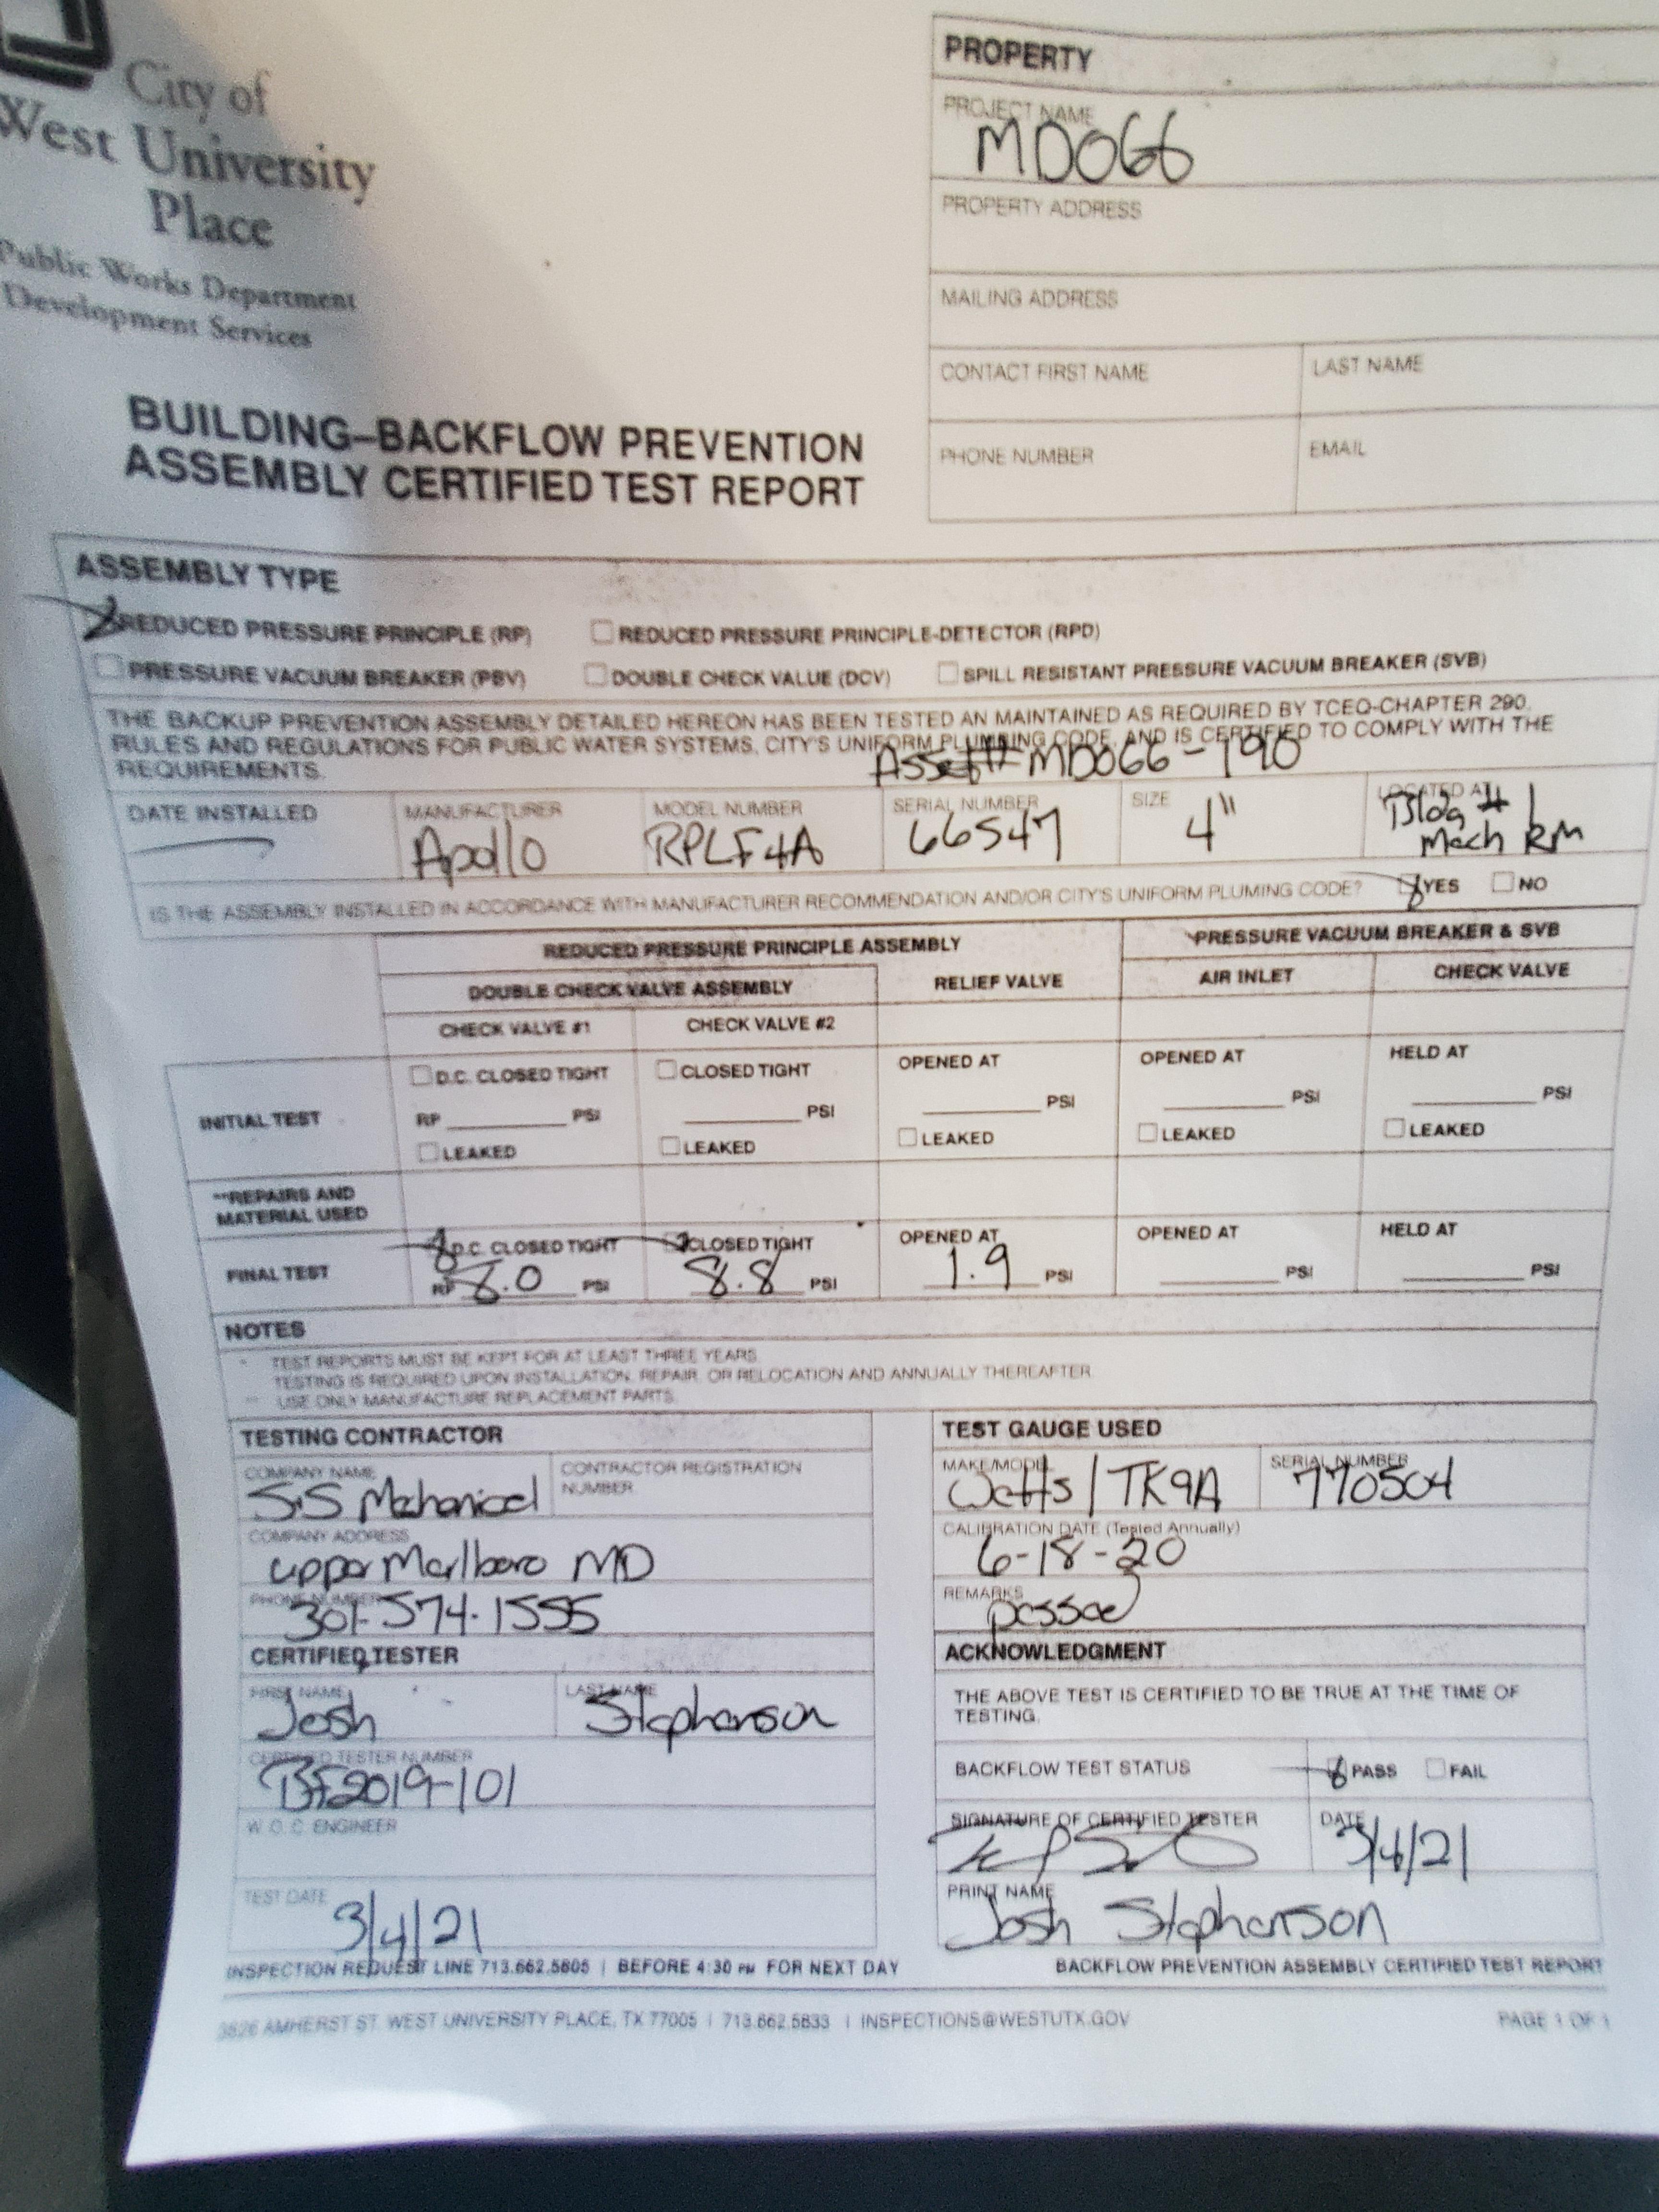 City of
West University
Place
Public Works Department
Development Services
BUILDING–BACKFLOW PREVENTION
ASSEMBLY CERTIFIED TEST REPORT
PROPERTY
PROJECT NAME
MD066
PROPERTY ADDRESS
MAILING ADDRESS
CONTACT FIRST NAME
LAST NAME
PHONE NUMBER
EMAIL
ASSEMBLY TYPE
REDUCED PRESSURE PRINCIPLE (RP)
REDUCED PRESSURE PRINCIPLE-DETECTOR (RPD)
PRESSURE VACUUM BREAKER (PBV)
DOUBLE CHECK VALUE (DCV)
SPILL RESISTANT PRESSURE VACUUM BREAKER (SVB)
THE BACKUP PREVENTION ASSEMBLY DETAILED HEREON HAS BEEN TESTED AN MAINTAINED AS REQUIRED BY TCEQ-CHAPTER 290.
RULES AND REGULATIONS FOR PUBLIC WATER SYSTEMS, CITY'S UNIFORM PLUMBING CODE, AND IS CERTIFIED TO COMPLY WITH THE
REQUIREMENTS.
Asset# MD066-190
DATE INSTALLED
MANUFACTURER
Apollo
MODEL NUMBER
RPLF4A
SERIAL NUMBER
66547
SIZE
4"
LOCATED AT
Bldg # 1
Mech RM
IS THE ASSEMBLY INSTALLED IN ACCORDANCE WITH MANUFACTURER RECOMMENDATION AND/OR CITY'S UNIFORM PLUMING CODE? YES NO
REDUCED PRESSURE PRINCIPLE ASSEMBLY
PRESSURE VACUUM BREAKER & SVB
DOUBLE CHECK VALVE ASSEMBLY
RELIEF VALVE
AIR INLET
CHECK VALVE
CHECK VALVE #1
CHECK VALVE #2
INITIAL TEST
D.C. CLOSED TIGHT
RP PSI
LEAKED
CLOSED TIGHT
PSI
LEAKED
OPENED AT
PSI
LEAKED
OPENED AT
PSI
LEAKED
HELD AT
PSI
LEAKED
**REPAIRS AND
MATERIAL USED
FINAL TEST
D.C. CLOSED TIGHT
RP 8.0 PSI
CLOSED TIGHT
8.8 PSI
OPENED AT
1.9 PSI
OPENED AT
PSI
HELD AT
PSI
NOTES
* TEST REPORTS MUST BE KEPT FOR AT LEAST THREE YEARS
TESTING IS REQUIRED UPON INSTALLATION, REPAIR, OR RELOCATION AND ANNUALLY THEREAFTER
** USE ONLY MANUFACTURE REPLACEMENT PARTS.
TESTING CONTRACTOR
COMPANY NAME
S.S Mechanical
CONTRACTOR REGISTRATION
NUMBER
COMPANY ADDRESS
Upper Marlboro MD
PHONE NUMBER
301-574-1555
CERTIFIED TESTER
FIRST NAME
Josh
LAST NAME
Stephenson
CERTIFIED TESTER NUMBER
BF2019-101
W.O.C. ENGINEER
TEST DATE
3/4/21
TEST GAUGE USED
MAKE/MODEL
Watts / TK9A
SERIAL NUMBER
770504
CALIBRATION DATE (Tested Annually)
6-18-20
REMARKS
passed
ACKNOWLEDGMENT
THE ABOVE TEST IS CERTIFIED TO BE TRUE AT THE TIME OF
TESTING.
BACKFLOW TEST STATUS
PASS FAIL
SIGNATURE OF CERTIFIED TESTER
DATE
3/4/21
PRINT NAME
Josh Stephenson
INSPECTION REQUEST LINE 713.662.5805 | BEFORE 4:30 PM FOR NEXT DAY
BACKFLOW PREVENTION ASSEMBLY CERTIFIED TEST REPORT
3826 AMHERST ST. WEST UNIVERSITY PLACE, TX 77005 | 713.662.5833 | INSPECTIONS@WESTUTX.GOV
PAGE 1 OF 1